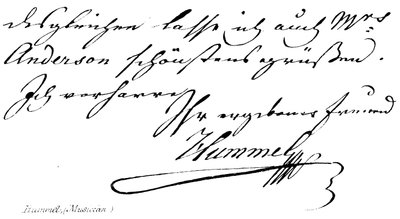 desgleichen lasse ich auch Mrs
Anderson schönstens grüßen.
Ich verharre
Ihr ergebener Freund
Hummel
Hummel, (Musician)